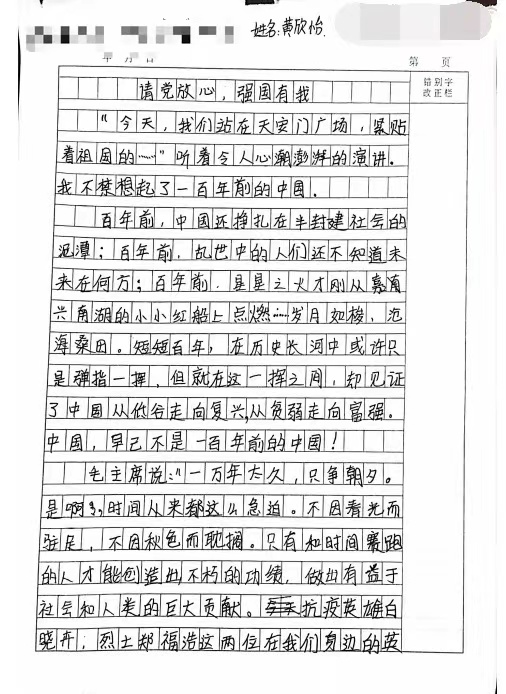 姓名:黄欣怡
年 月 日
第 页
错别字
改正栏
请党放心，强国有我
“今天，我们站在天安门广场，紧贴
着祖国的……”听着令人心潮澎湃的演讲。
我不禁想起了一百年前的中国。
百年前，中国还挣扎在半封建社会的
泥潭；百年前，乱世中的人们还不知道未
来在何方；百年前，星星之火才刚从嘉
兴南湖的小小红船上点燃……岁月如梭，
海桑田。短短百年，在历史长河中或许只
是弹指一挥，但就在这一挥之间，却见证
了中国从低谷走向复兴，从贫弱走向富强。
中国，早已不是一百年前的中国！
毛主席说：“一万年太久，只争朝夕。
是啊，时间从来都这么急迫。不因春光而
驻足，不因秋色而耽搁。只有和时间赛跑
的人才能创造出不朽的功绩，做出有益于
社会和人类的巨大贡献。抗疫英雄白
晓卉；烈士郑福浩这两位在我们身边的英